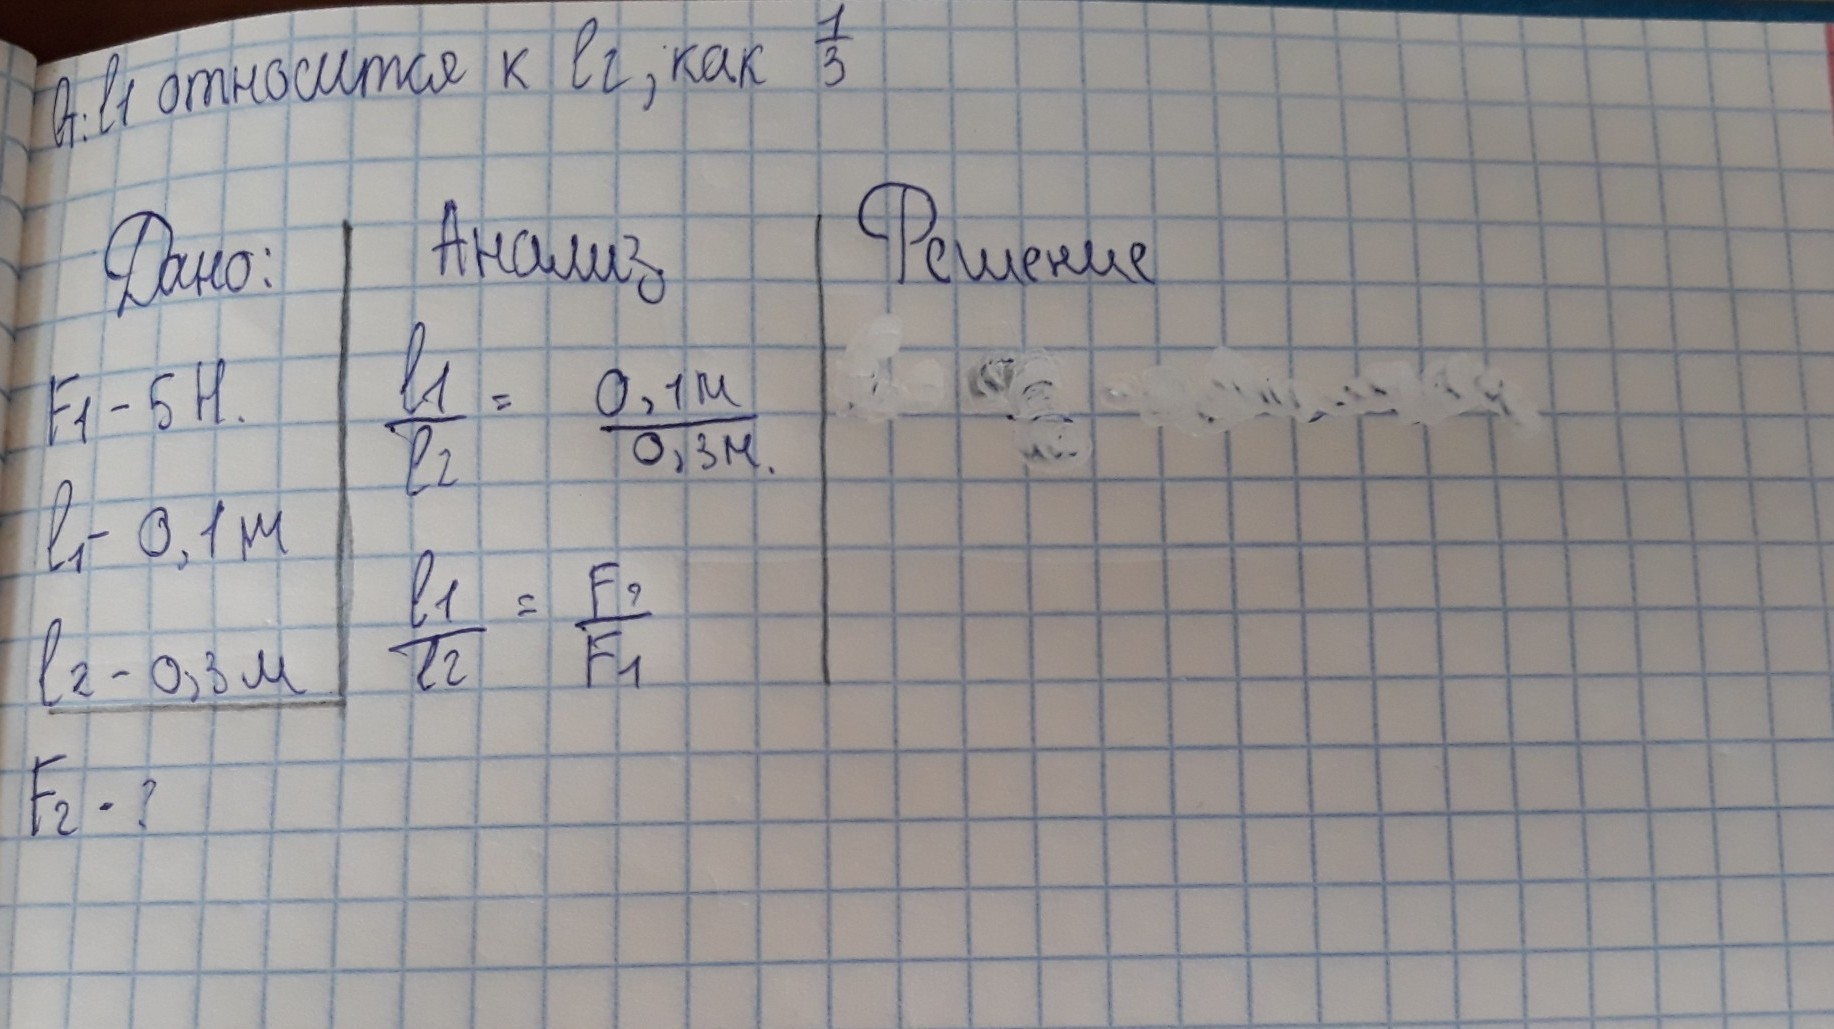 А: l1 относится к l2, как 1/3
Дано:
F1 - 5 Н.
l1 - 0,1 м
l2 - 0,3 м
F2 - ?
Анализ
l1/l2 = 0,1м/0,3м.
l1/l2 = F2/F1
Решение